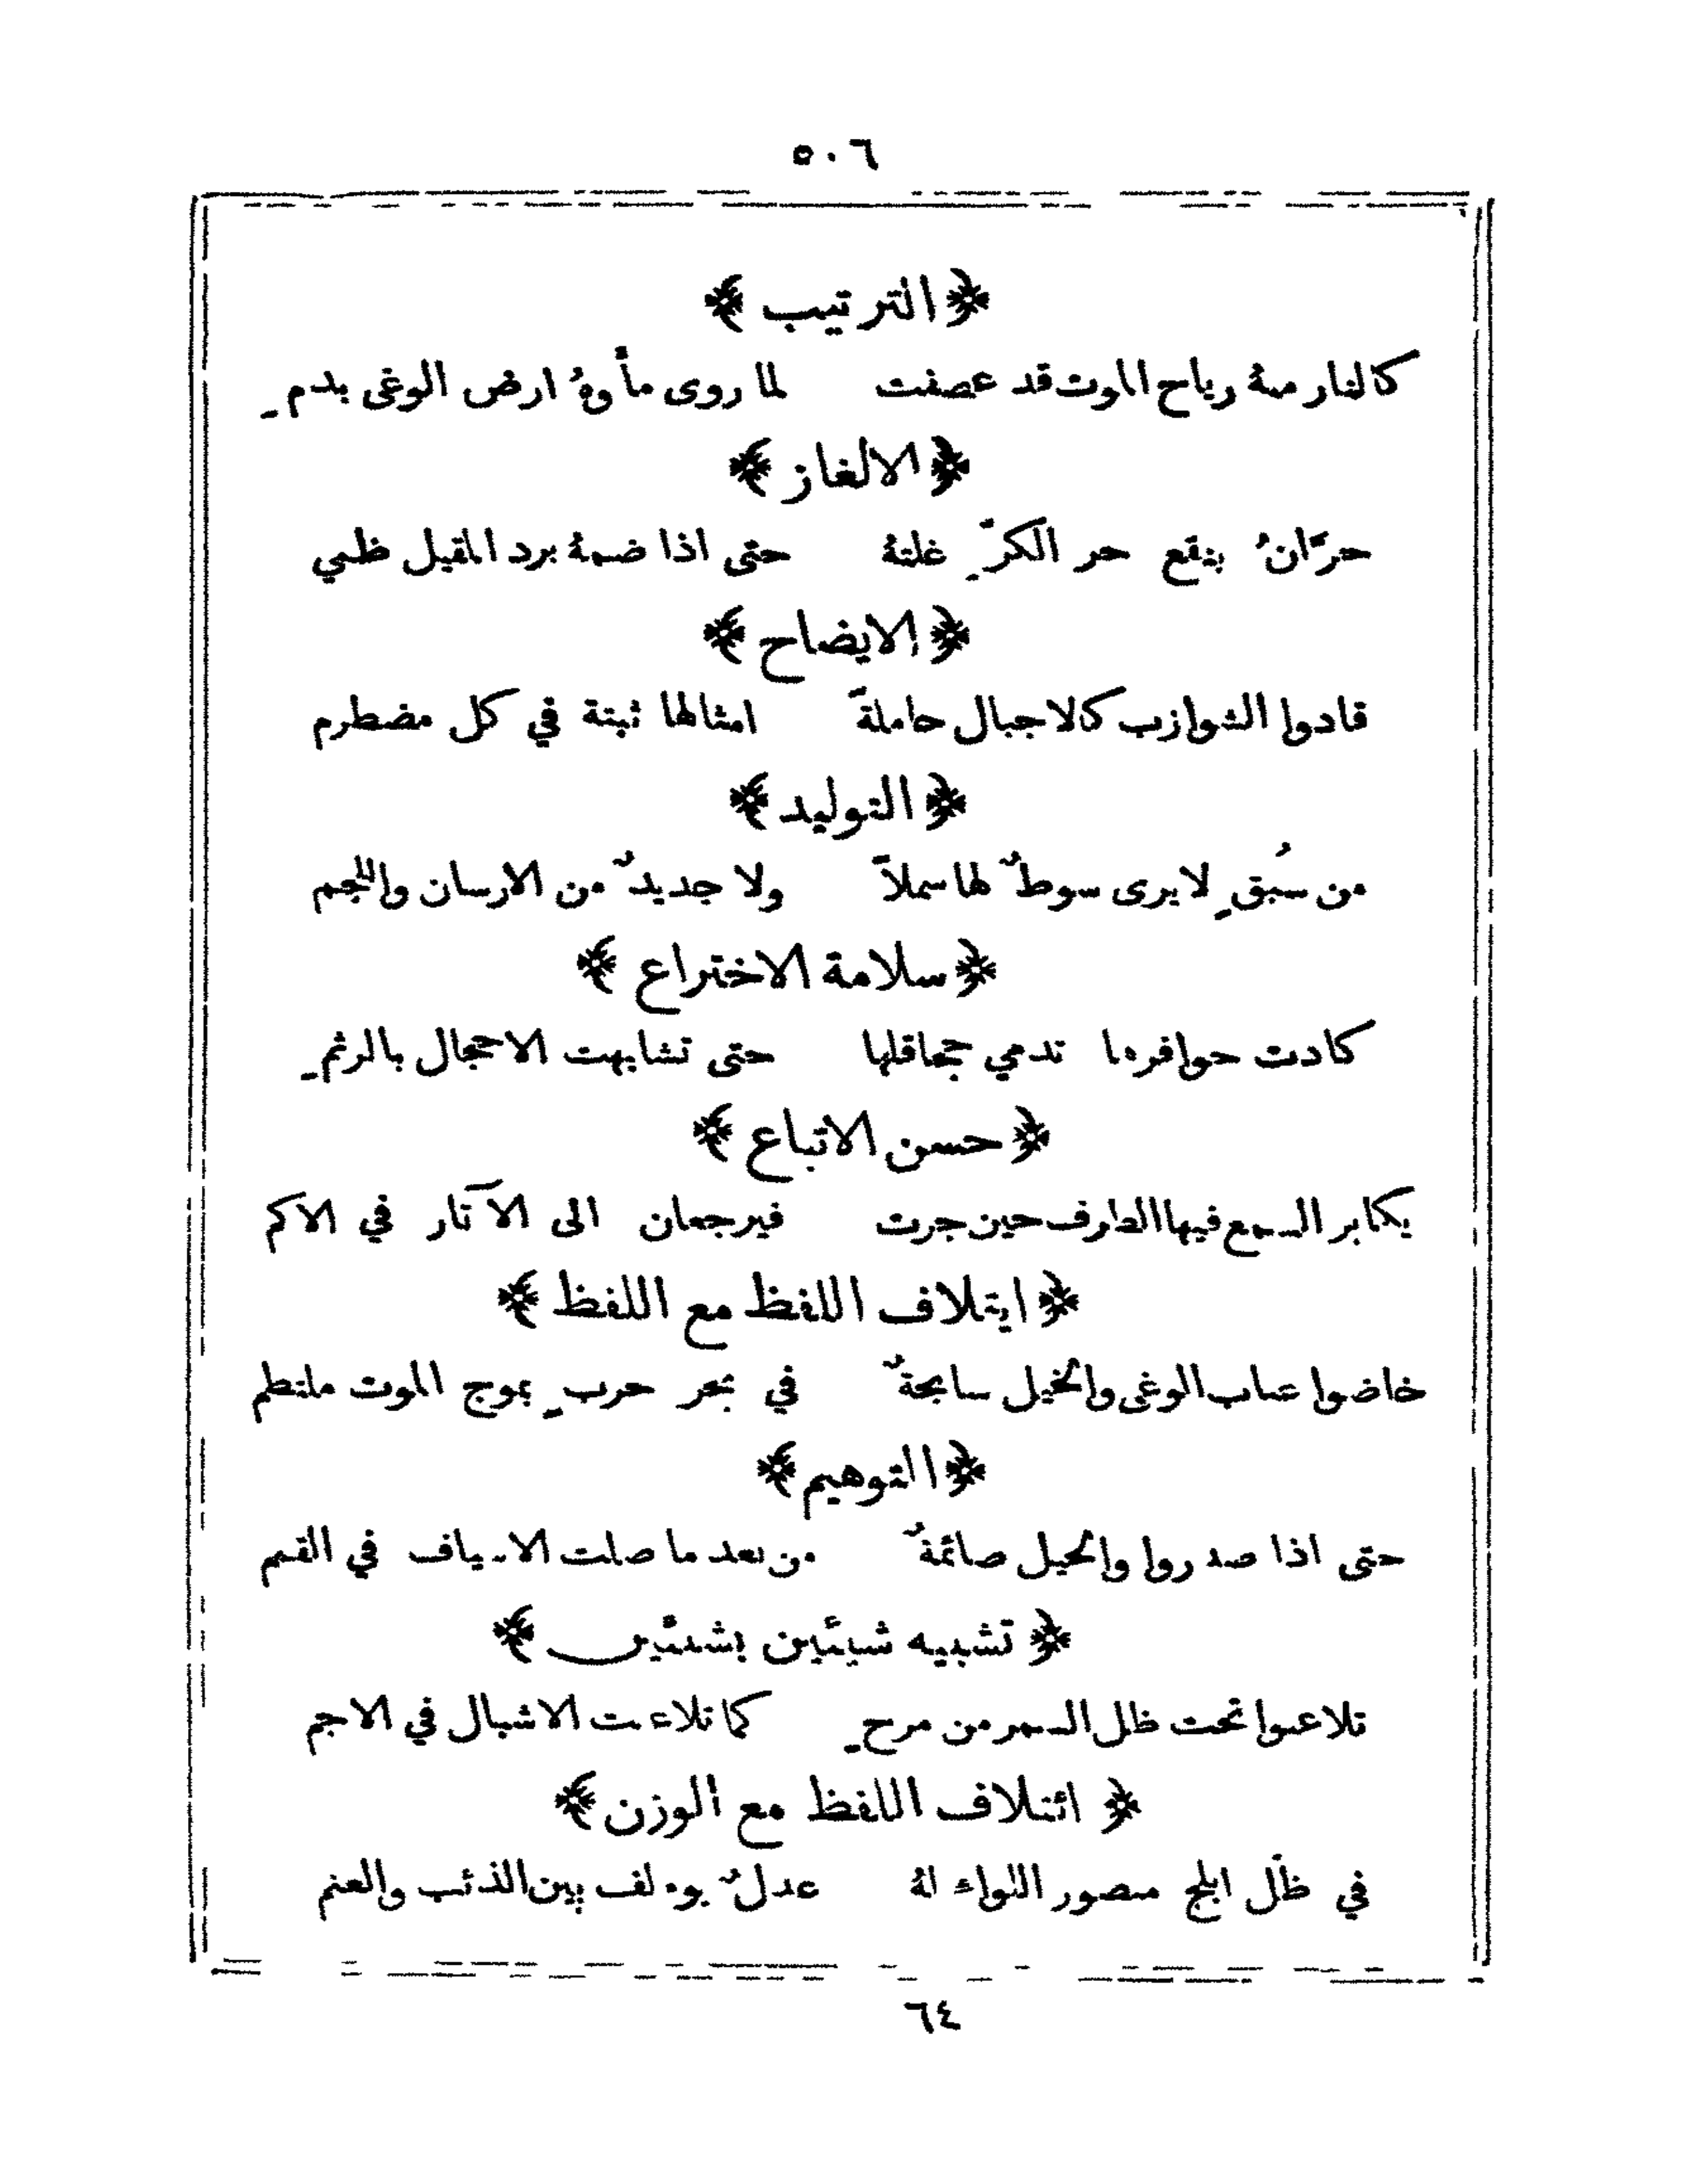 ٥٠٦
﴿ الترتيب ﴾
كالنار منهُ رياح الموت قد عصفت لما روى مأوهُ ارض الوغى بدمِ
﴿ الالغاز ﴾
حرَّانُ ينقع حر الكرِّ غلتهُ حتى اذا ضمهُ برد المقيل ظمي
﴿ الايضاح ﴾
قادوا الشوازب كالاجبال حاملةً امثالها ثبتة في كل مضطرم
﴿ التوليد ﴾
من سُبقٍ لا يرى سوطٌ لها سملاً ولا جديدٌ من الارسان واللجم
﴿ سلامة الاختراع ﴾
كادت حوافرها تدمي جحافلها حتى تشابهت الاحجال بالرثمِ
﴿ حسن الاتباع ﴾
يكابر السمع فيها الطرف حين جرت فيرجعان الى الآثار في الاكم
﴿ ايتلاف اللفظ مع اللفظ ﴾
خاضوا عباب الوغى والخيل سابحةٌ في بحر حربٍ بموج الموت ملتطم
﴿ التوهيم ﴾
حتى اذا صدروا والخيل صائمةٌ من بعد ما صلت الاسياف في القمم
﴿ تشبيه شيئين بشيئين ﴾
تلاعبوا تحت ظل السمر من مرحٍ كما تلاعبت الاشبال في الاجم
﴿ ائتلاف اللفظ مع الوزن ﴾
في ظّل ابلج منصور اللواء لهُ عدلٌ يوءلف بين الذئب والغنم
٦٤